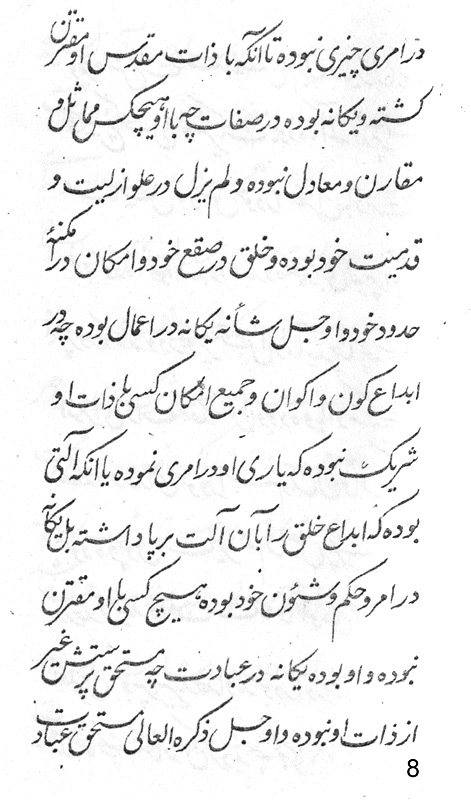 در امری چیزی نبوده تا انکه با ذات مقدس او مقترن
کشته و یکانه بوده در صفات چه با او هیچکس مماثل و
مقارن و معادل نبوده و لم یزل در علو ازلیت و
قدمیت خود بوده و خلق در صقع خود و امکان در امکنهٔ
حدود خود و او جل شأنه یکانه در اعمال بوده چه در
ابداع کون و اکوان و جمیع امکان کسی با ذات او
شریک نبوده که یاری او در امری نموده یا انکه التی
بوده که ابداع خلق را بآن آلت برپا داشته بل یکانه
در امر و حکم و شئون خود بوده هیچ کسی با او مقترن
نبوده و او بوده یکانه در عبادت چه مستحق پرستش غیر
از ذات او نبوده و او جل ذکره العالی مستحق عبادت
8